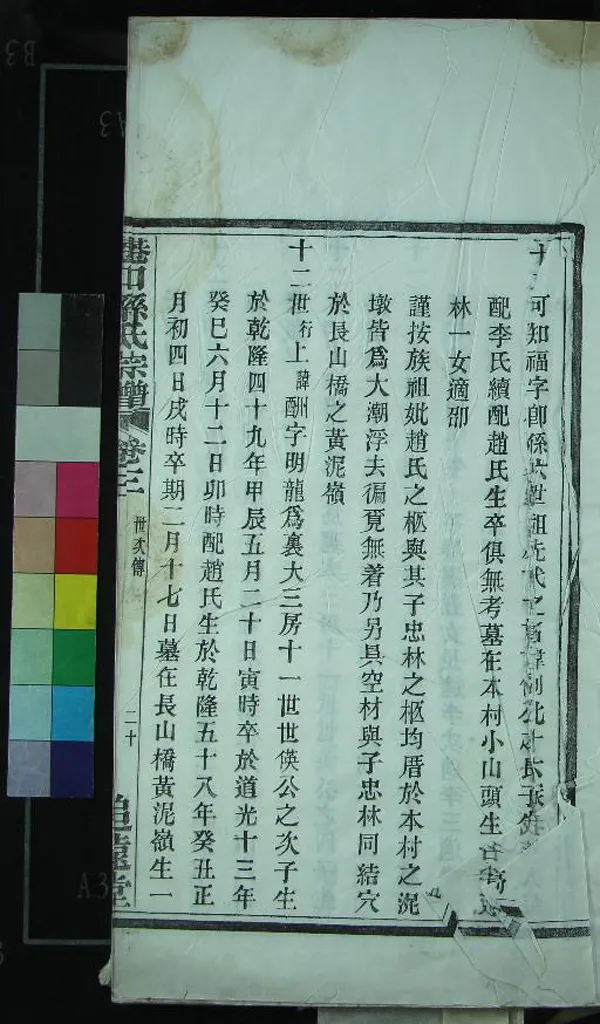 可知福字卽係六世祖
配李氏續配趙氏生卒俱無考墓在本村小山頭生
林一女適邵
謹按族祖妣趙氏之柩與其子忠林之柩均厝於本村之泥
墩皆爲大潮浮去徧覓無着乃另具空材與子忠林同結穴
於長山橋之黃泥嶺
十二世行上諱酬字明龍爲裏大三房十一世世僙公之次子生
於乾隆四十九年甲辰五月二十日寅時卒於道光十三年
癸巳六月十二日卯時配趙氏生於乾隆五十八年癸丑正
月初四日戌時卒期二月十七日墓在長山橋黃泥嶺生一
孫氏宗譜 卷之二 世次傳 二十 追遠堂